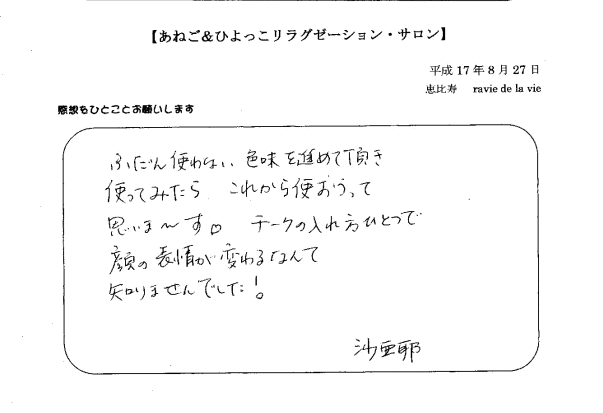 【あねご&ひよっこリラグゼーション・サロン】
平成17年8月27日
恵比寿 ravie de la vie
感想もひとことお願いします
ふだん使わない、色味を進めて頂き
使ってみたら これから使おうって
思いま〜す♡ チークの入れ方ひとつで
顔の表情が変わるなんて
知りませんでした!。
沙亜耶